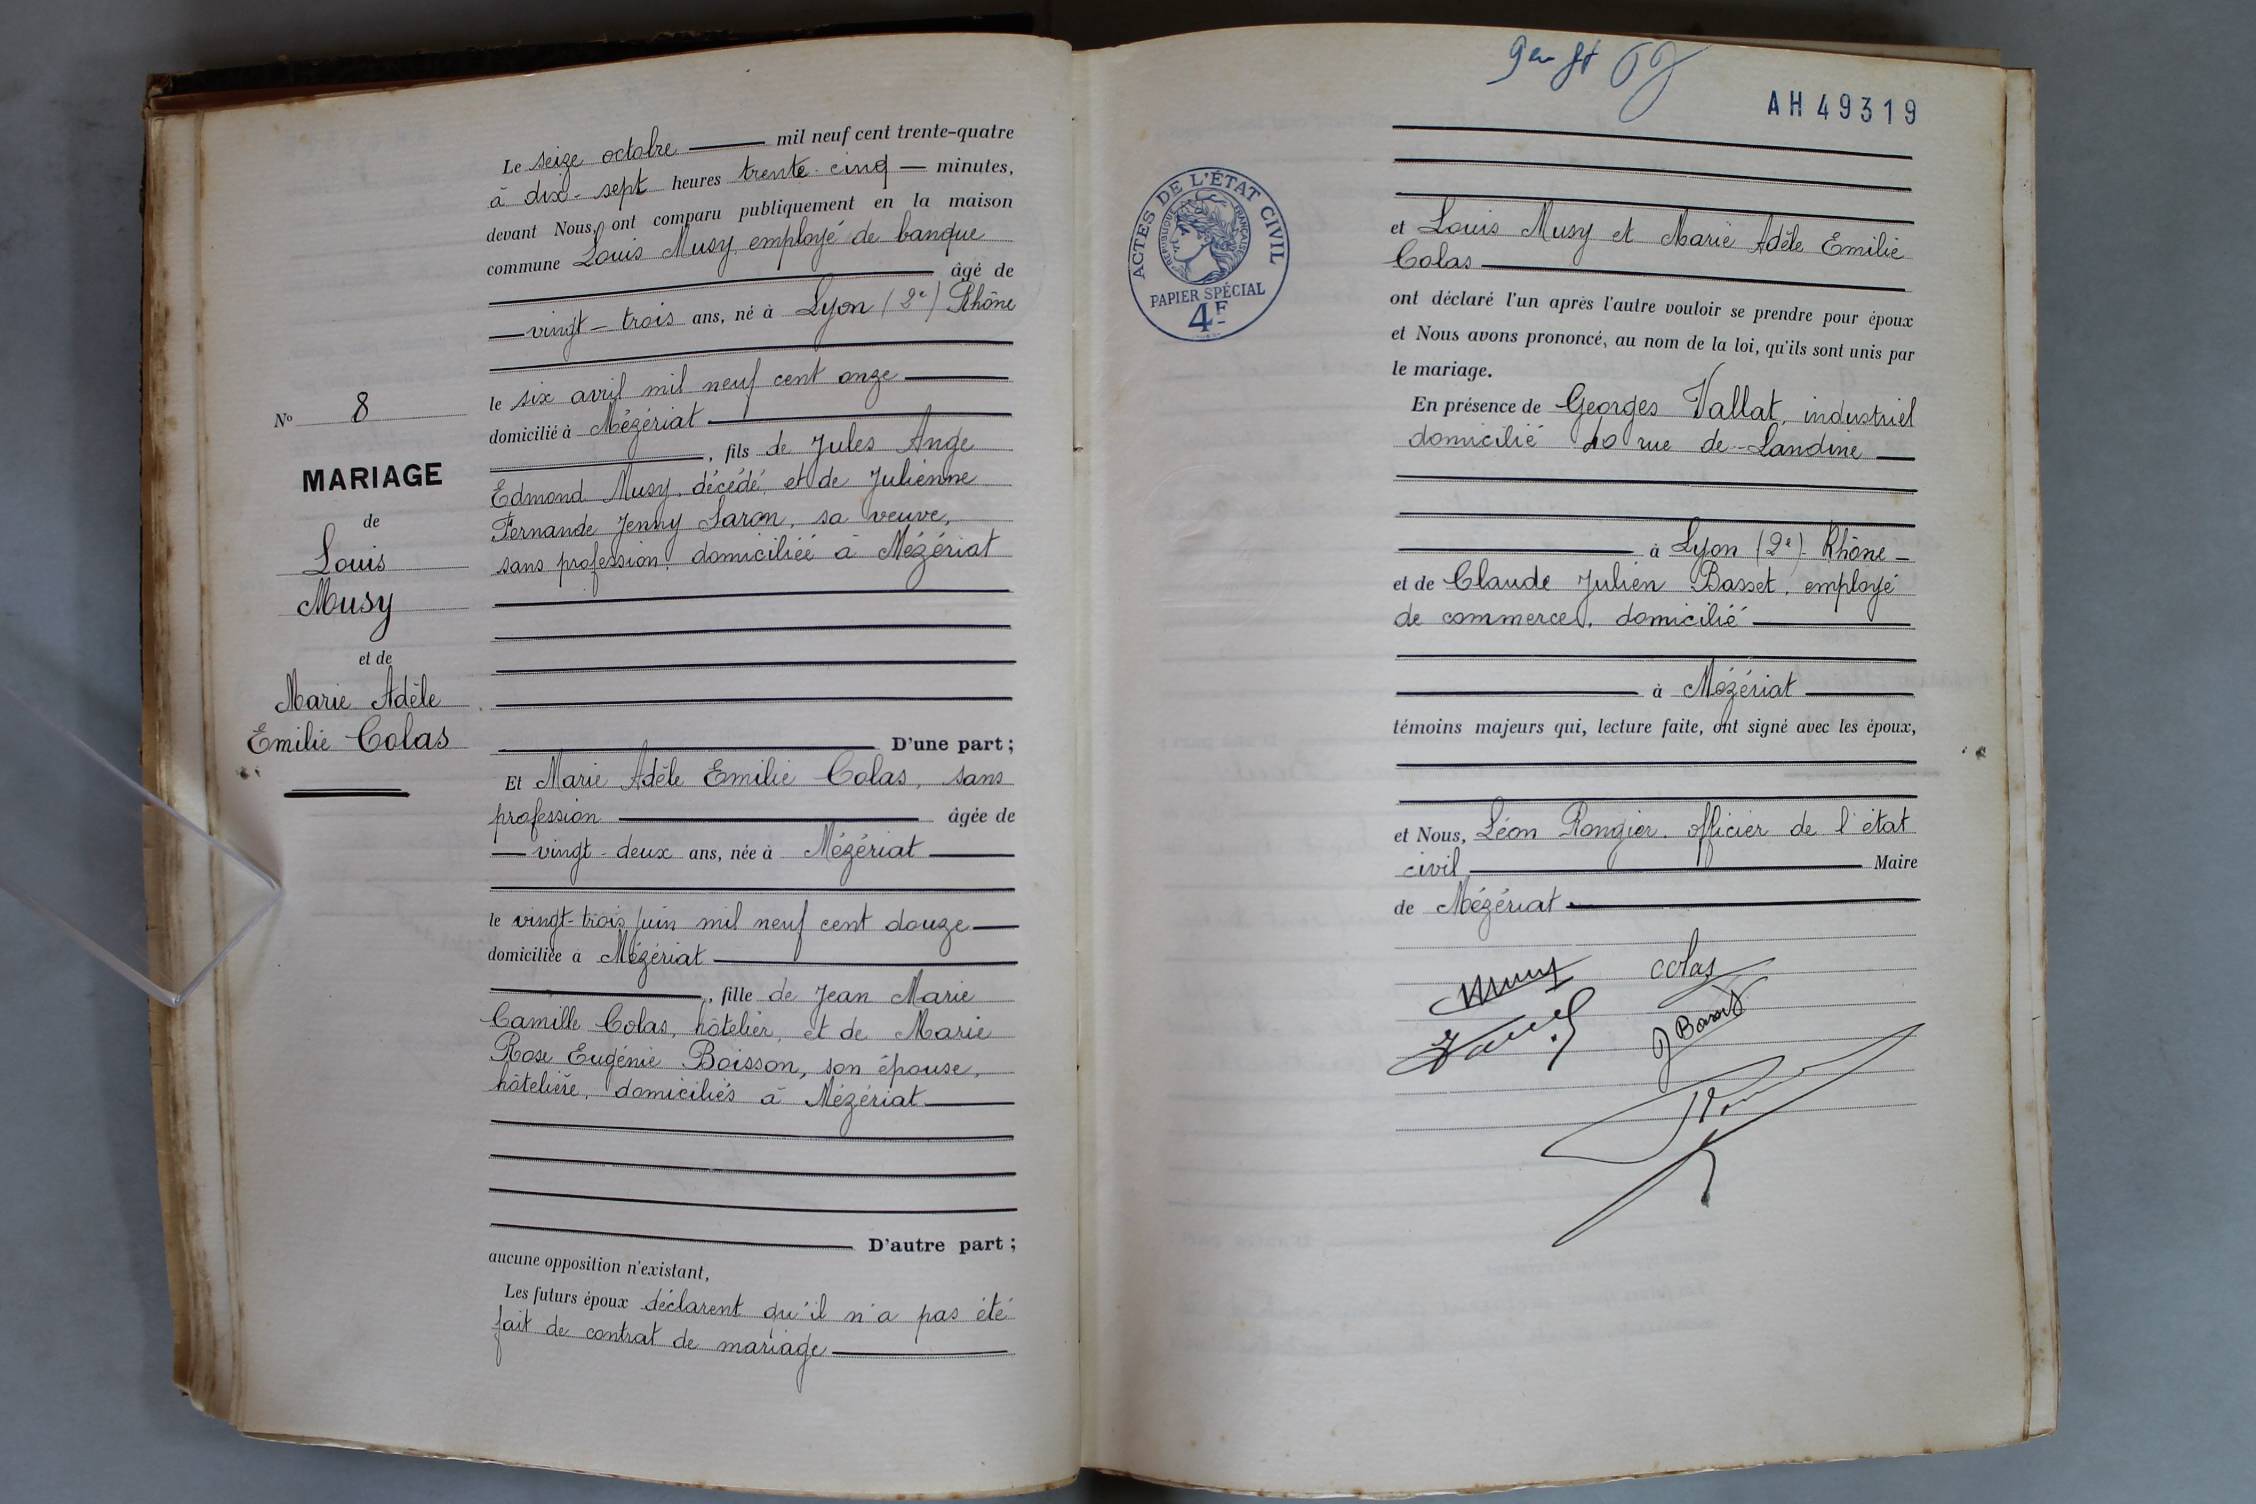 Le seize octobre mil neuf cent trente-quatre
à dix-sept heures trente-cinq minutes,
devant Nous, ont comparu publiquement en la maison
commune Louis Musy, employé de banque
âgé de
vingt-trois ans, né à Lyon (2e) Rhône
le six avril mil neuf cent onze
domicilié à Mézériat
, fils de Jules Ange
Edmond Musy, décédé, et de Julienne
Fernande Jenny Saron, sa veuve,
sans profession, domiciliée à Mézériat
D'une part ;
Et Marie Adèle Emilie Colas, sans
profession âgée de
vingt-deux ans, née à Mézériat
le vingt-trois juin mil neuf cent douze
domiciliée à Mézériat
, fille de Jean Marie
Camille Colas, hôtelier, et de Marie
Rose Eugénie Boisson, son épouse,
hôtelière, domiciliés à Mézériat
D'autre part ;
aucune opposition n'existant,
Les futurs époux déclarent qu'il n'a pas été
fait de contrat de mariage
No 8
MARIAGE
de
Louis
Musy
et de
Marie Adèle
Emilie Colas
AH 49319
ACTES DE L'ÉTAT CIVIL
RÉPUBLIQUE FRANÇAISE
PAPIER SPÉCIAL
4F
et Louis Musy et Marie Adèle Emilie
Colas
ont déclaré l'un après l'autre vouloir se prendre pour époux
et Nous avons prononcé, au nom de la loi, qu'ils sont unis par
le mariage.
En présence de Georges Vallat, industriel
domicilié rue de Landine
à Lyon (2e) Rhône
et de Claude Julien Basset, employé
de commerce, domicilié
à Mézériat
témoins majeurs qui, lecture faite, ont signé avec les époux,
et Nous, Léon Rongier, officier de l'état
civil Maire
de Mézériat
Musy
Colas